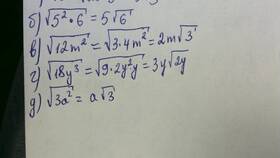 б) √(5²·6) = 5√6
в) √(12m²) = √(3·4m²) = 2m√3
г) √(18y³) = √(9·2y²y) = 3y√(2y)
д) √(3a²) = a√3